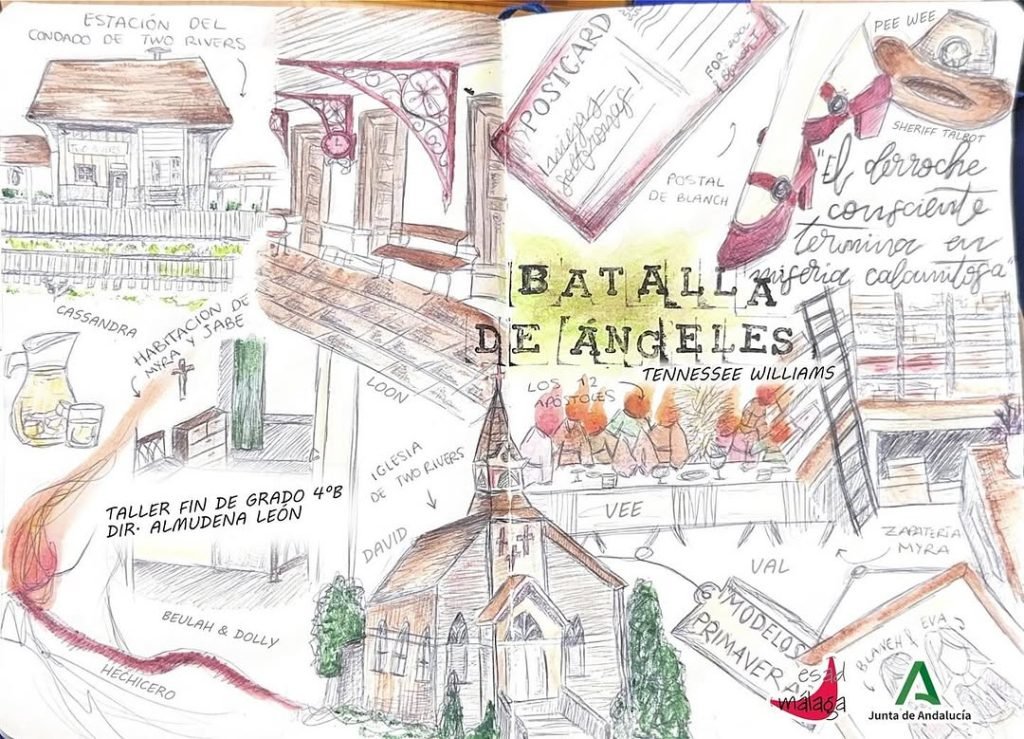 ESTACIÓN DEL
CONDADO DE TWO RIVERS
POSTCARD
FOR
PEE WEE
SHERIFF TALBOT
POSTAL
DE BLANCH
"El derroche
consciente
termina en
miseria calamitosa"
BATALLA
DE ÁNGELES
TENNESSEE WILLIAMS
CASSANDRA
HABITACIÓN DE
MYRA Y JABE
LOON
LOS 12
APÓSTOLES
IGLESIA
DE TWO RIVERS
TALLER FIN DE GRADO 4ºB
DIR. ALMUDENA LEÓN
DAVID
VEE
ZAPATERÍA
MYRA
VAL
BEULAH & DOLLY
HECHICERO
6 MODELOS
PRIMAVERA
BLANCH & EVA
esad
málaga
Junta de Andalucía